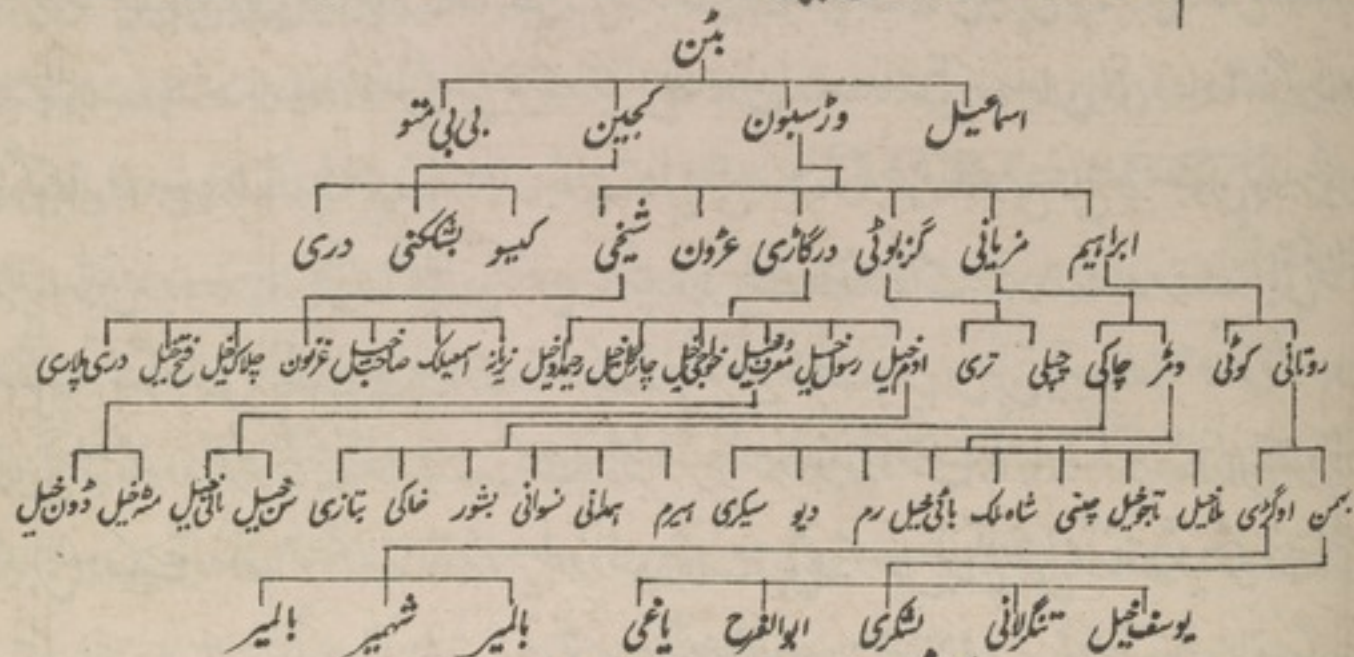 بٹن
اسماعیل وڑسبون کجین بی بی متو
ابراہیم مزیانی گزبوٹی درگاڑی عژون شیخی کیسو بشکنی دری
روتانی کوٹی وٹر چاکی چپلی تری ادم خیل رسول خیل معرف خیل خواجی خیل چارگل خیل نزیانہ اسمعیلک صاحب خیل غزنون چلاک خیل فتح خیل دری پلاری
بہمن اوگڑی ملاخیل تاجوخیل چھنی شاہ ملک بائی خیل رم دیو سیکری بیرم ہمدانی نسوانی بشور خاکی بتازی حسن خیل نائی خیل مشر خیل ڈون خیل
یوسف خیل تنگرلانی لشکری ابوالفرح یاغی بالمیر شہمیر بالمیر